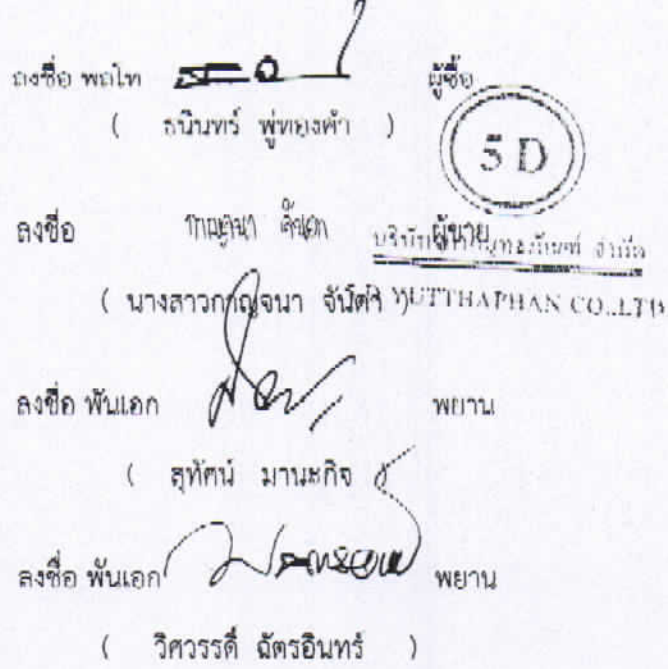 ลงชื่อ พลโท ผู้ซื้อ
( ธนินทร์ พู่ทองคำ )
5 D
ลงชื่อ กาญจนา ผู้ขาย
จำกัด
( นางสาวกาญจนา จันต๊ะ ) YUTTHAPHAN CO.,LTD
ลงชื่อ พันเอก พยาน
( สุทัศน์ มานะกิจ )
ลงชื่อ พันเอก พยาน
( วิศวรรดิ์ ฉัตรอินทร์ )